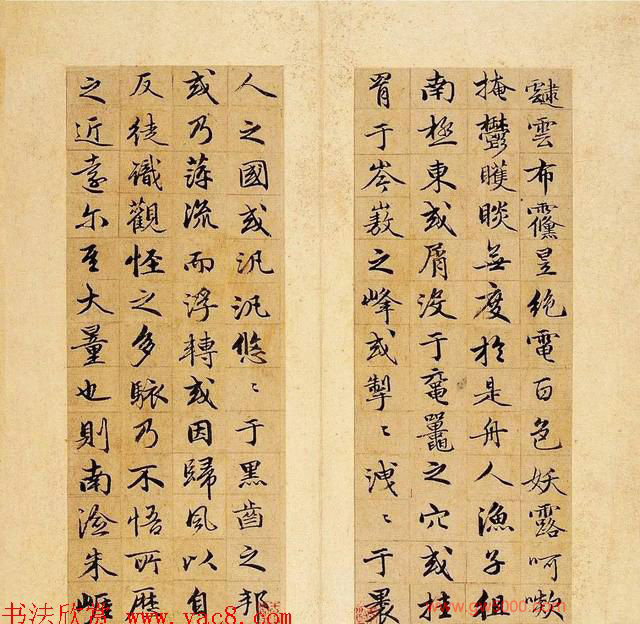 雲布昱絶電百色妖露呵
掩鬱矆睒無度於是舟人漁子徂
南極東或屑没于黿鼉之穴或挂
罥于岑嶅之峰或掣〻洩〻于
人之國或汎汎悠〻于黑齒之邦
或乃萍流而浮轉或因歸風以自
反徒識觀怪之多駭乃不悟所歷
之近遠尔大量也則南澰朱崖
书法欣赏 www.yac8.com